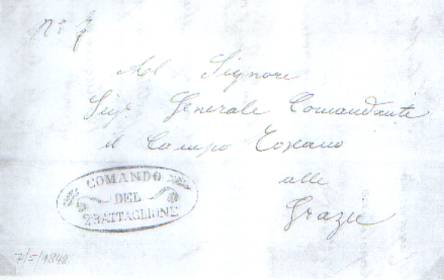 N° 7
Al Signore
Sigr. Generale Comandante
il Campo Toscano
alle
Grazie
COMANDO
DEL
2° BATTAGLIONE
7/5/1848